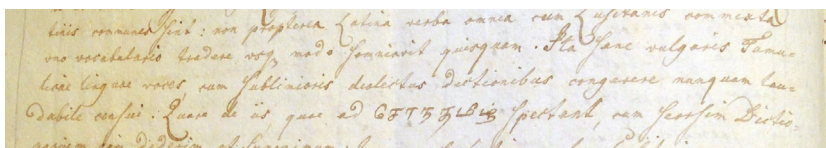 tinis communes sint: non propterea Latina verba omnia cum Lusitanis commixta
uno vocabulario tradere usq, modo somniavit quisquam. Ita sane vulgaris Tamu-
licae linguae voces, cum sublimioris dialectus dictionibus congerere nunquam lau-
dabile censui: Quare de iis, quae ad செந்தமிழ் spectant, cum seorsim Dictio-